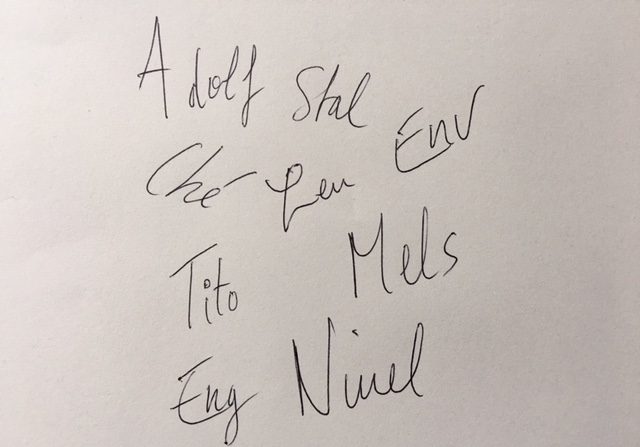 Adolf Stal
Ché Len Env
Tito Mels
Eng Ninel